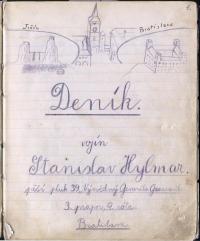 Jičín Bratislava
Deník.
vojín
Stanislav Hylmar.
pěší pluk 39. Výzvědný Generála Graziani
3. prapor, 9. rota.
Bratislava